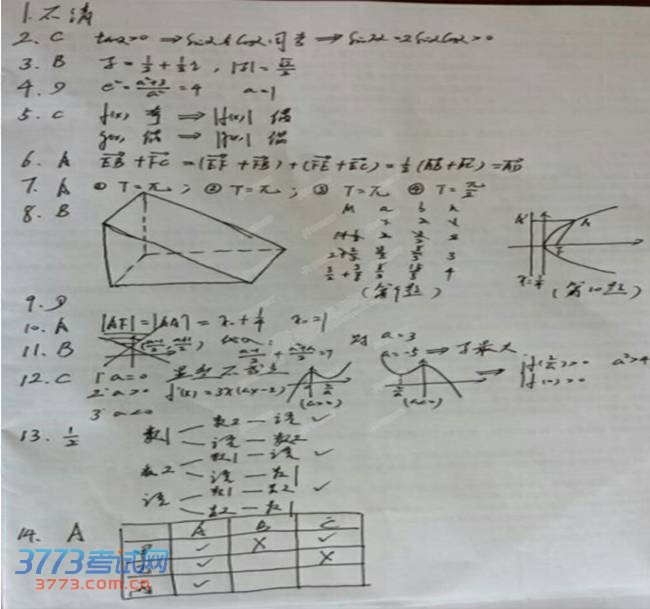 1. 不清
2. C tanα>0 ⇒ sinα cosα 同号 ⇒ sin2α=2sinαcosα>0
3. B z=1/2+1/2i, |z|=√2/2
4. D e²=(a²+3)/a²=4 a=1
5. C f(x) 奇 ⇒ |f(x)| 偶
g(x) 偶 ⇒ |g(x)| 偶
6. A EB+FC=(EF+FB)+(FE+EC)=1/2(AB+AC)=AD
7. A ① T=π; ② T=π; ③ T=π ④ T=π/2
8. B
M a b n
(第9题)
(第10题)
9. D
10. A |AF|=|AA'|=x₀+1/4 x₀=1
11. B
a=3
a=-5
12. C 1° a=0
2° a>0 f'(x)=3x(ax-2)
(a>0)
(a<0)
a²>4
3° a<0
13. 1/2
数1 数2 — 语 ✓
语 — 数2
数2 数1 — 语 ✓
语 — 数1
语 数1 — 数2 ✓
数2 — 数1
14. A
A B C
✓ X ✓
✓ X
✓
3773考试网
3773.com.cn